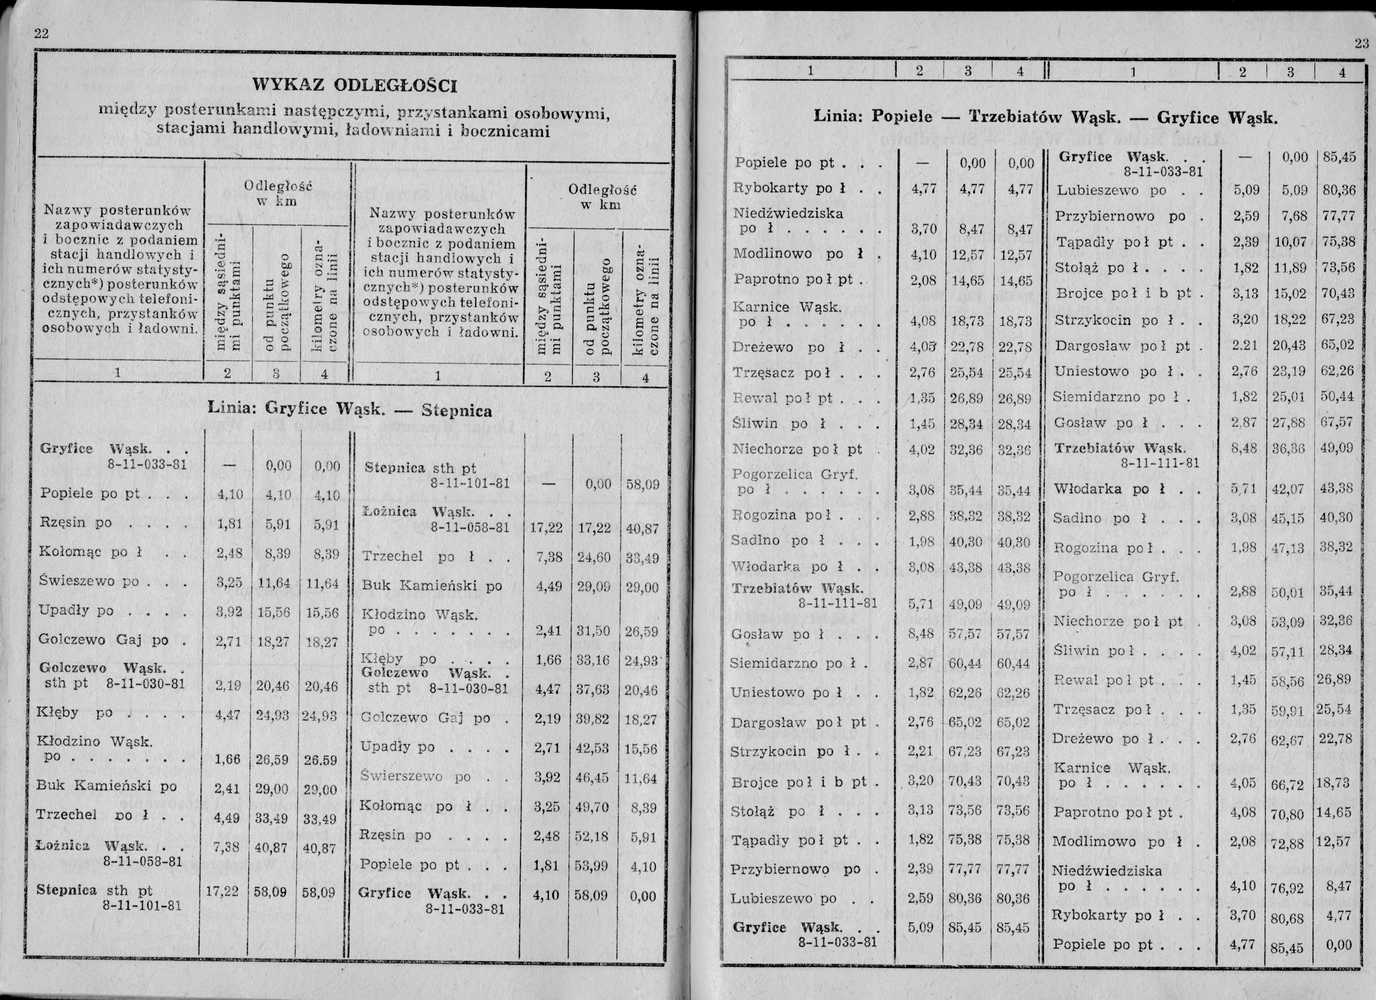 22
WYKAZ ODLEGŁOŚCI
między posterunkami następczymi, przystankami osobowymi,
stacjami handlowymi, ładowniami i bocznicami
Nazwy posterunków
zapowiadawczych
i bocznic z podaniem
stacji handlowych i
ich numerów statysty-
cznych*) posterunków
odstępowych telefoni-
cznych, przystanków
osobowych i ładowni.
Odległość
w km
między sąsiedni-
mi punktami
od punktu
początkowego
kilometry ozna-
czone na linii
Nazwy posterunków
zapowiadawczych
i bocznic z podaniem
stacji handlowych i
ich numerów statysty-
cznych*) posterunków
odstępowych telefoni-
cznych, przystanków
osobowych i ładowni.
Odległość
w km
między sąsiedni-
mi punktami
od punktu
początkowego
kilometry ozna-
czone na linii
1 2 3 4 1 2 3 4
Linia: Gryfice Wąsk. — Stepnica
Gryfice Wąsk. . .
8-11-033-81 — 0,00 0,00
Popiele po pt . . . 4,10 4,10 4,10
Rzęsin po . . . . 1,81 5,91 5,91
Kołomąc po ł . . 2,48 8,39 8,39
Świeszewo po . . . 3,25 11,64 11,64
Upadły po . . . . 3,92 15,56 15,56
Golczewo Gaj po . 2,71 18,27 18,27
Golczewo Wąsk. .
sth pt 8-11-030-81 2,19 20,46 20,46
Kłęby po . . . . 4,47 24,93 24,93
Kłodzino Wąsk.
po . . . . . . . 1,66 26,59 26.59
Buk Kamieński po 2,41 29,00 29,00
Trzechel po ł . . 4,49 33,49 33,49
Łoźnica Wąsk. . . 7,38 40,87 40,87
8-11-058-81
Stepnica sth pt 17,22 58,09 58,09
8-11-101-81
Stepnica sth pt
8-11-101-81 — 0,00 58,09
Łoźnica Wąsk. . .
8-11-058-81 17,22 17,22 40,87
Trzechel po ł . . 7,38 24,60 33,49
Buk Kamieński po 4,49 29,09 29,00
Kłodzino Wąsk.
po . . . . . . . 2,41 31,50 26,59
Kłęby po . . . . 1,66 33,16 24,93
Golczewo Wąsk. .
sth pt 8-11-030-81 4,47 37,63 20,46
Golczewo Gaj po . 2,19 39,82 18,27
Upadły po . . . . 2,71 42,53 15,56
Świerszewo po . . 3,92 46,45 11,64
Kołomąc po ł . . 3,25 49,70 8,39
Rzęsin po . . . . 2,48 52,18 5,91
Popiele po pt . . . 1,81 53,99 4,10
Gryfice Wąsk. . . 4,10 58,09 0,00
8-11-033-81
23
1 2 3 4 1 2 3 4
Linia: Popiele — Trzebiatów Wąsk. — Gryfice Wąsk.
Popiele po pt . . . — 0,00 0,00
Rybokarty po ł . . 4,77 4,77 4,77
Niedźwiedziska
po ł . . . . . . 3,70 8,47 8,47
Modlinowo po ł . 4,10 12,57 12,57
Paprotno po ł pt . 2,08 14,65 14,65
Karnice Wąsk.
po ł . . . . . . 4,08 18,73 18,73
Dreżewo po ł . . 4,05 22,78 22,78
Trzęsacz po ł . . . 2,76 25,54 25,54
Rewal po ł pt . . . 1,35 26,89 26,89
Śliwin po ł . . . 1,45 28,34 28,34
Niechorze po ł pt . 4,02 32,36 32,36
Pogorzelica Gryf.
po ł . . . . . . 3,08 35,44 35,44
Rogozina po ł . . . 2,88 38,32 38,32
Sadlno po ł . . . 1,98 40,30 40,30
Włodarka po ł . . 3,08 43,38 43,38
Trzebiatów Wąsk.
8-11-111-81 5,71 49,09 49,09
Gosław po ł . . . 8,48 57,57 57,57
Siemidarzno po ł . 2,87 60,44 60,44
Uniestowo po ł . . 1,82 62,26 62,26
Dargosław po ł pt . 2,76 65,02 65,02
Strzykocin po ł . . 2,21 67,23 67,23
Brojce po ł i b pt . 3,20 70,43 70,43
Stołąż po ł . . . 3,13 73,56 73,56
Tąpadły po ł pt . . 1,82 75,38 75,38
Przybiernowo po . 2,39 77,77 77,77
Lubieszewo po . . 2,59 80,36 80,36
Gryfice Wąsk. . . 5,09 85,45 85,45
8-11-033-81
Gryfice Wąsk. . . — 0,00 85,45
8-11-033-81
Lubieszewo po . . 5,09 5,09 80,36
Przybiernowo po . 2,59 7,68 77,77
Tąpadły po ł pt . . 2,39 10,07 75,38
Stołąż po ł . . . . 1,82 11,89 73,56
Brojce po ł i b pt . 3,13 15,02 70,43
Strzykocin po ł . . 3,20 18,22 67,23
Dargosław po ł pt . 2.21 20,43 65,02
Uniestowo po ł . . 2,76 23,19 62,26
Siemidarzno po ł . 1,82 25,01 50,44
Gosław po ł . . . 2.87 27,88 67,57
Trzebiatów Wąsk. 8,48 36,36 49,09
8-11-111-81
Włodarka po ł . . 5,71 42,07 43,38
Sadlno po ł . . . 3,08 45,15 40,30
Rogozina po ł . . . 1,98 47,13 38,32
Pogorzelica Gryf.
po ł . . . . . . 2,88 50,01 35,44
Niechorze po ł pt . 3,08 53,09 32,36
Śliwin po ł . . . . 4,02 57,11 28,34
Rewal po ł pt . . . 1,45 58,56 26,89
Trzęsacz po ł . . . 1,35 59,91 25,54
Dreżewo po ł . . . 2,76 62,67 22,78
Karnice Wąsk.
po ł . . . . . . 4,05 66,72 18,73
Paprotno po ł pt . 4,08 70,80 14,65
Modlimowo po ł . 2,08 72,88 12,57
Niedźwiedziska
po ł . . . . . . 4,10 76,92 8,47
Rybokarty po ł . . 3,70 80,68 4,77
Popiele po pt . . . 4,77 85,45 0,00